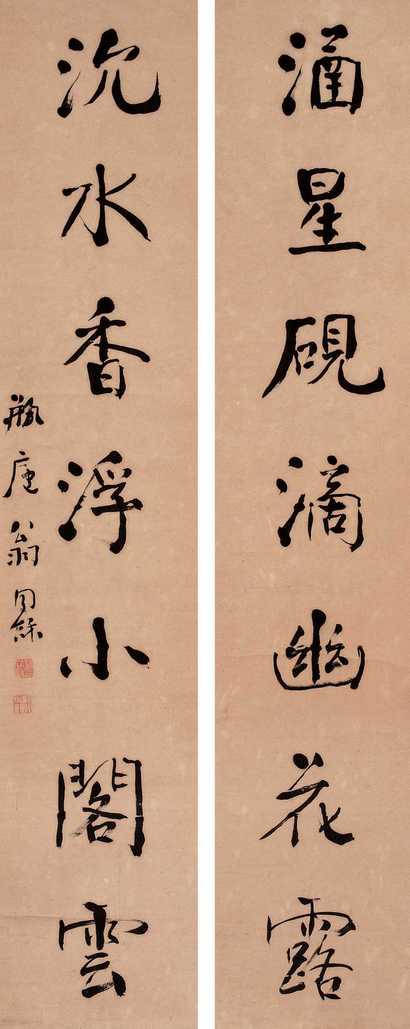 涵星硯滴幽花露
沈水香浮小閣雲
瓶庵翁同龢